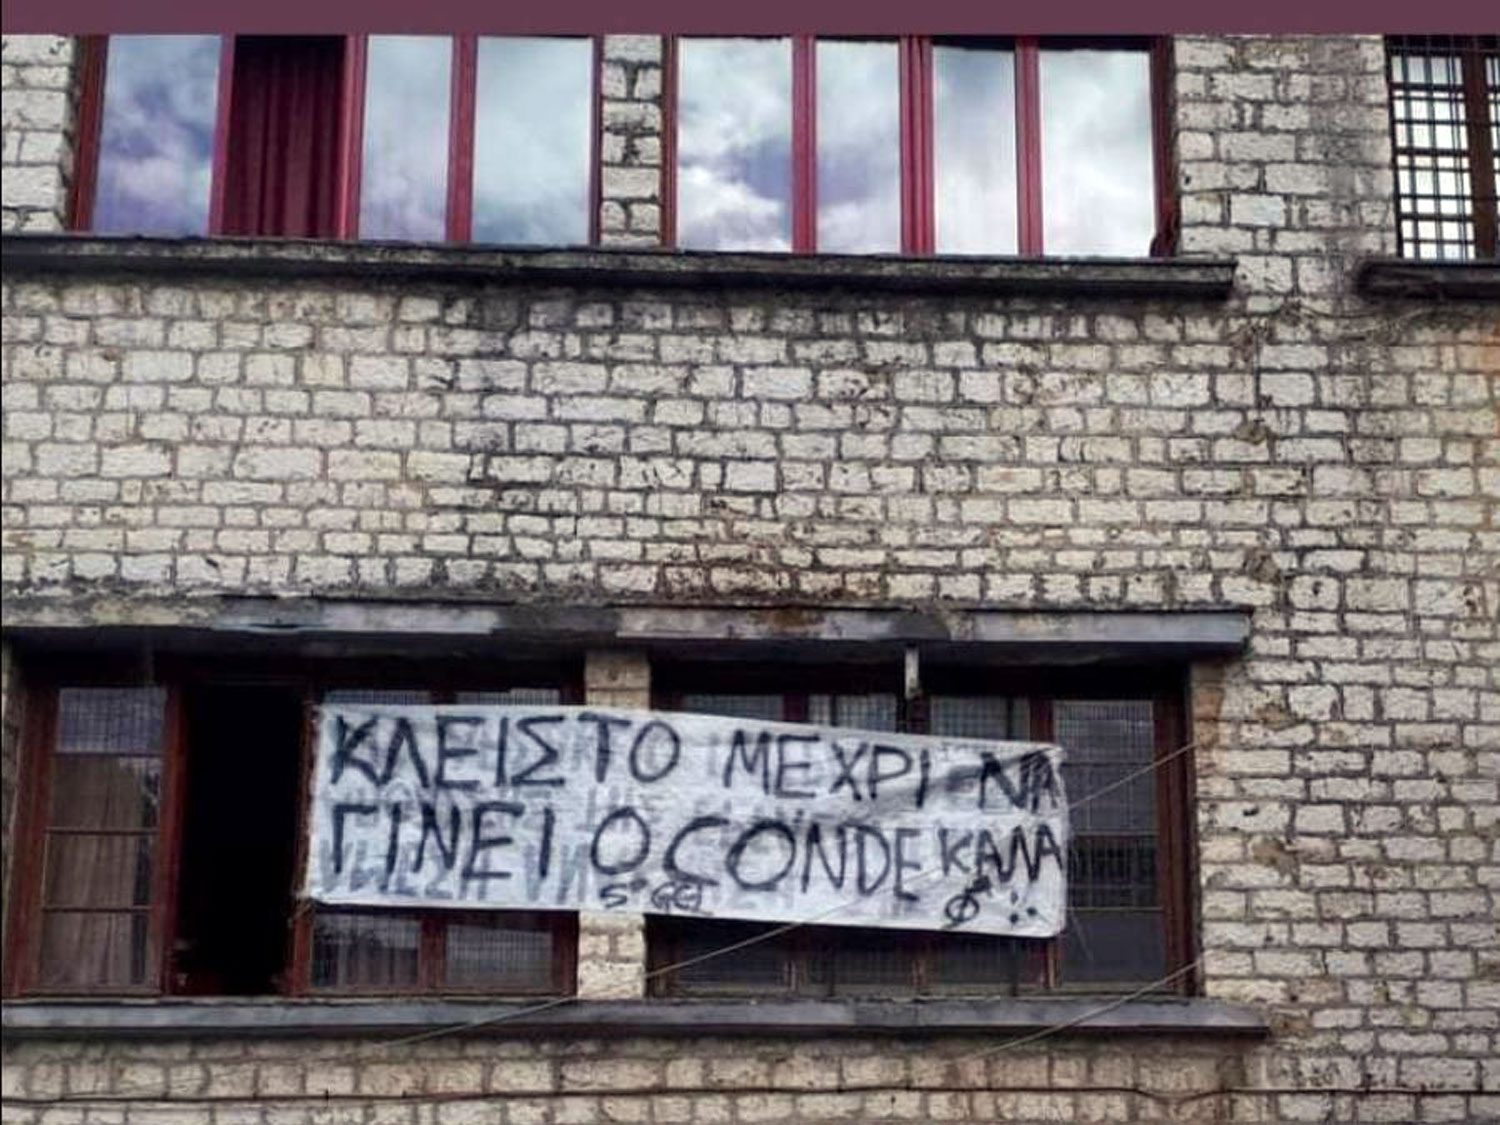 ΚΛΕΙΣΤΟ ΜΕΧΡΙ ΝΑ
ΓΙΝΕΙ Ο CONDE ΚΑΛΑ
5° ΓΕΛ